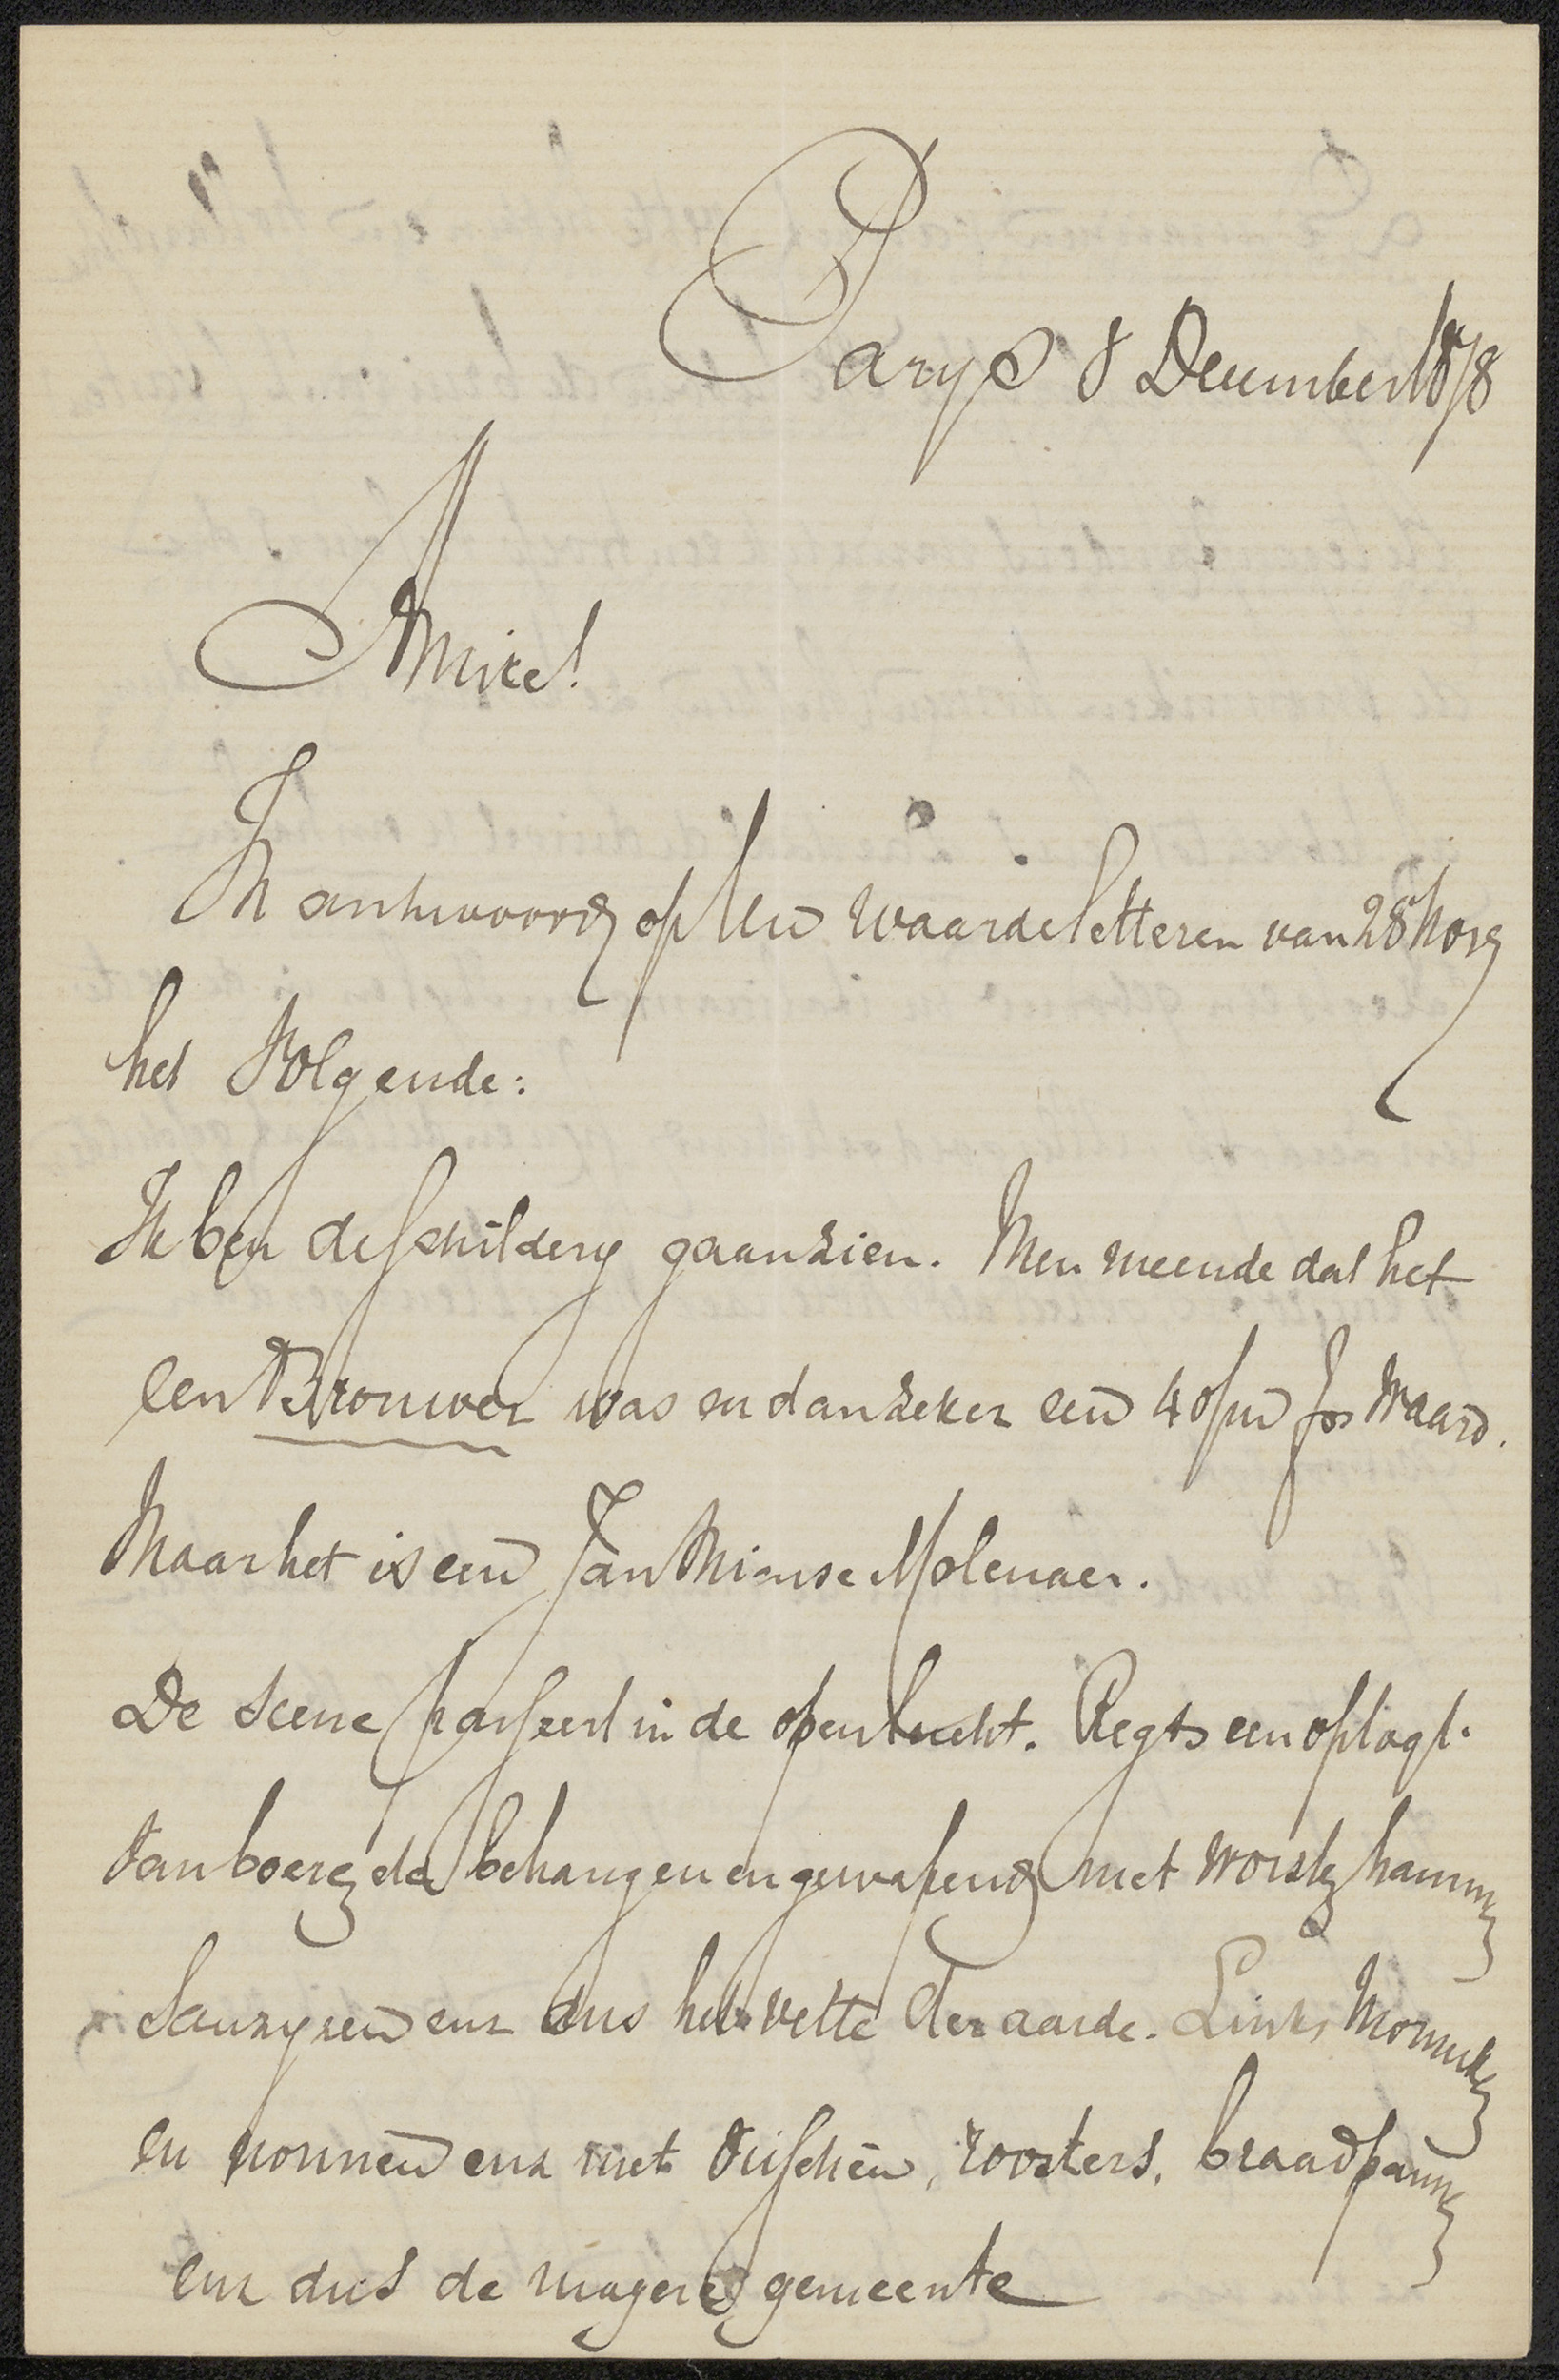 Parys 8 December 1878
Amice!
In antwoord op Uw waarde letteren van 28 Nov
het Volgende:
Ik ben de schildery gaan zien. Men meende dat het
een Brouwer was en dan zeker een 40 frs Waard.
Maar het is een Jan Miense Molenaer.
De scene passeert in de open lucht. Regts een optogt
van boeren behangen en gewapend met worsten hammen
Saucyzen enz dus het vette der aarde. Links Monniken
en nonnen enz met visschen, roosters, braadpannen
enz dus de magere gemeente